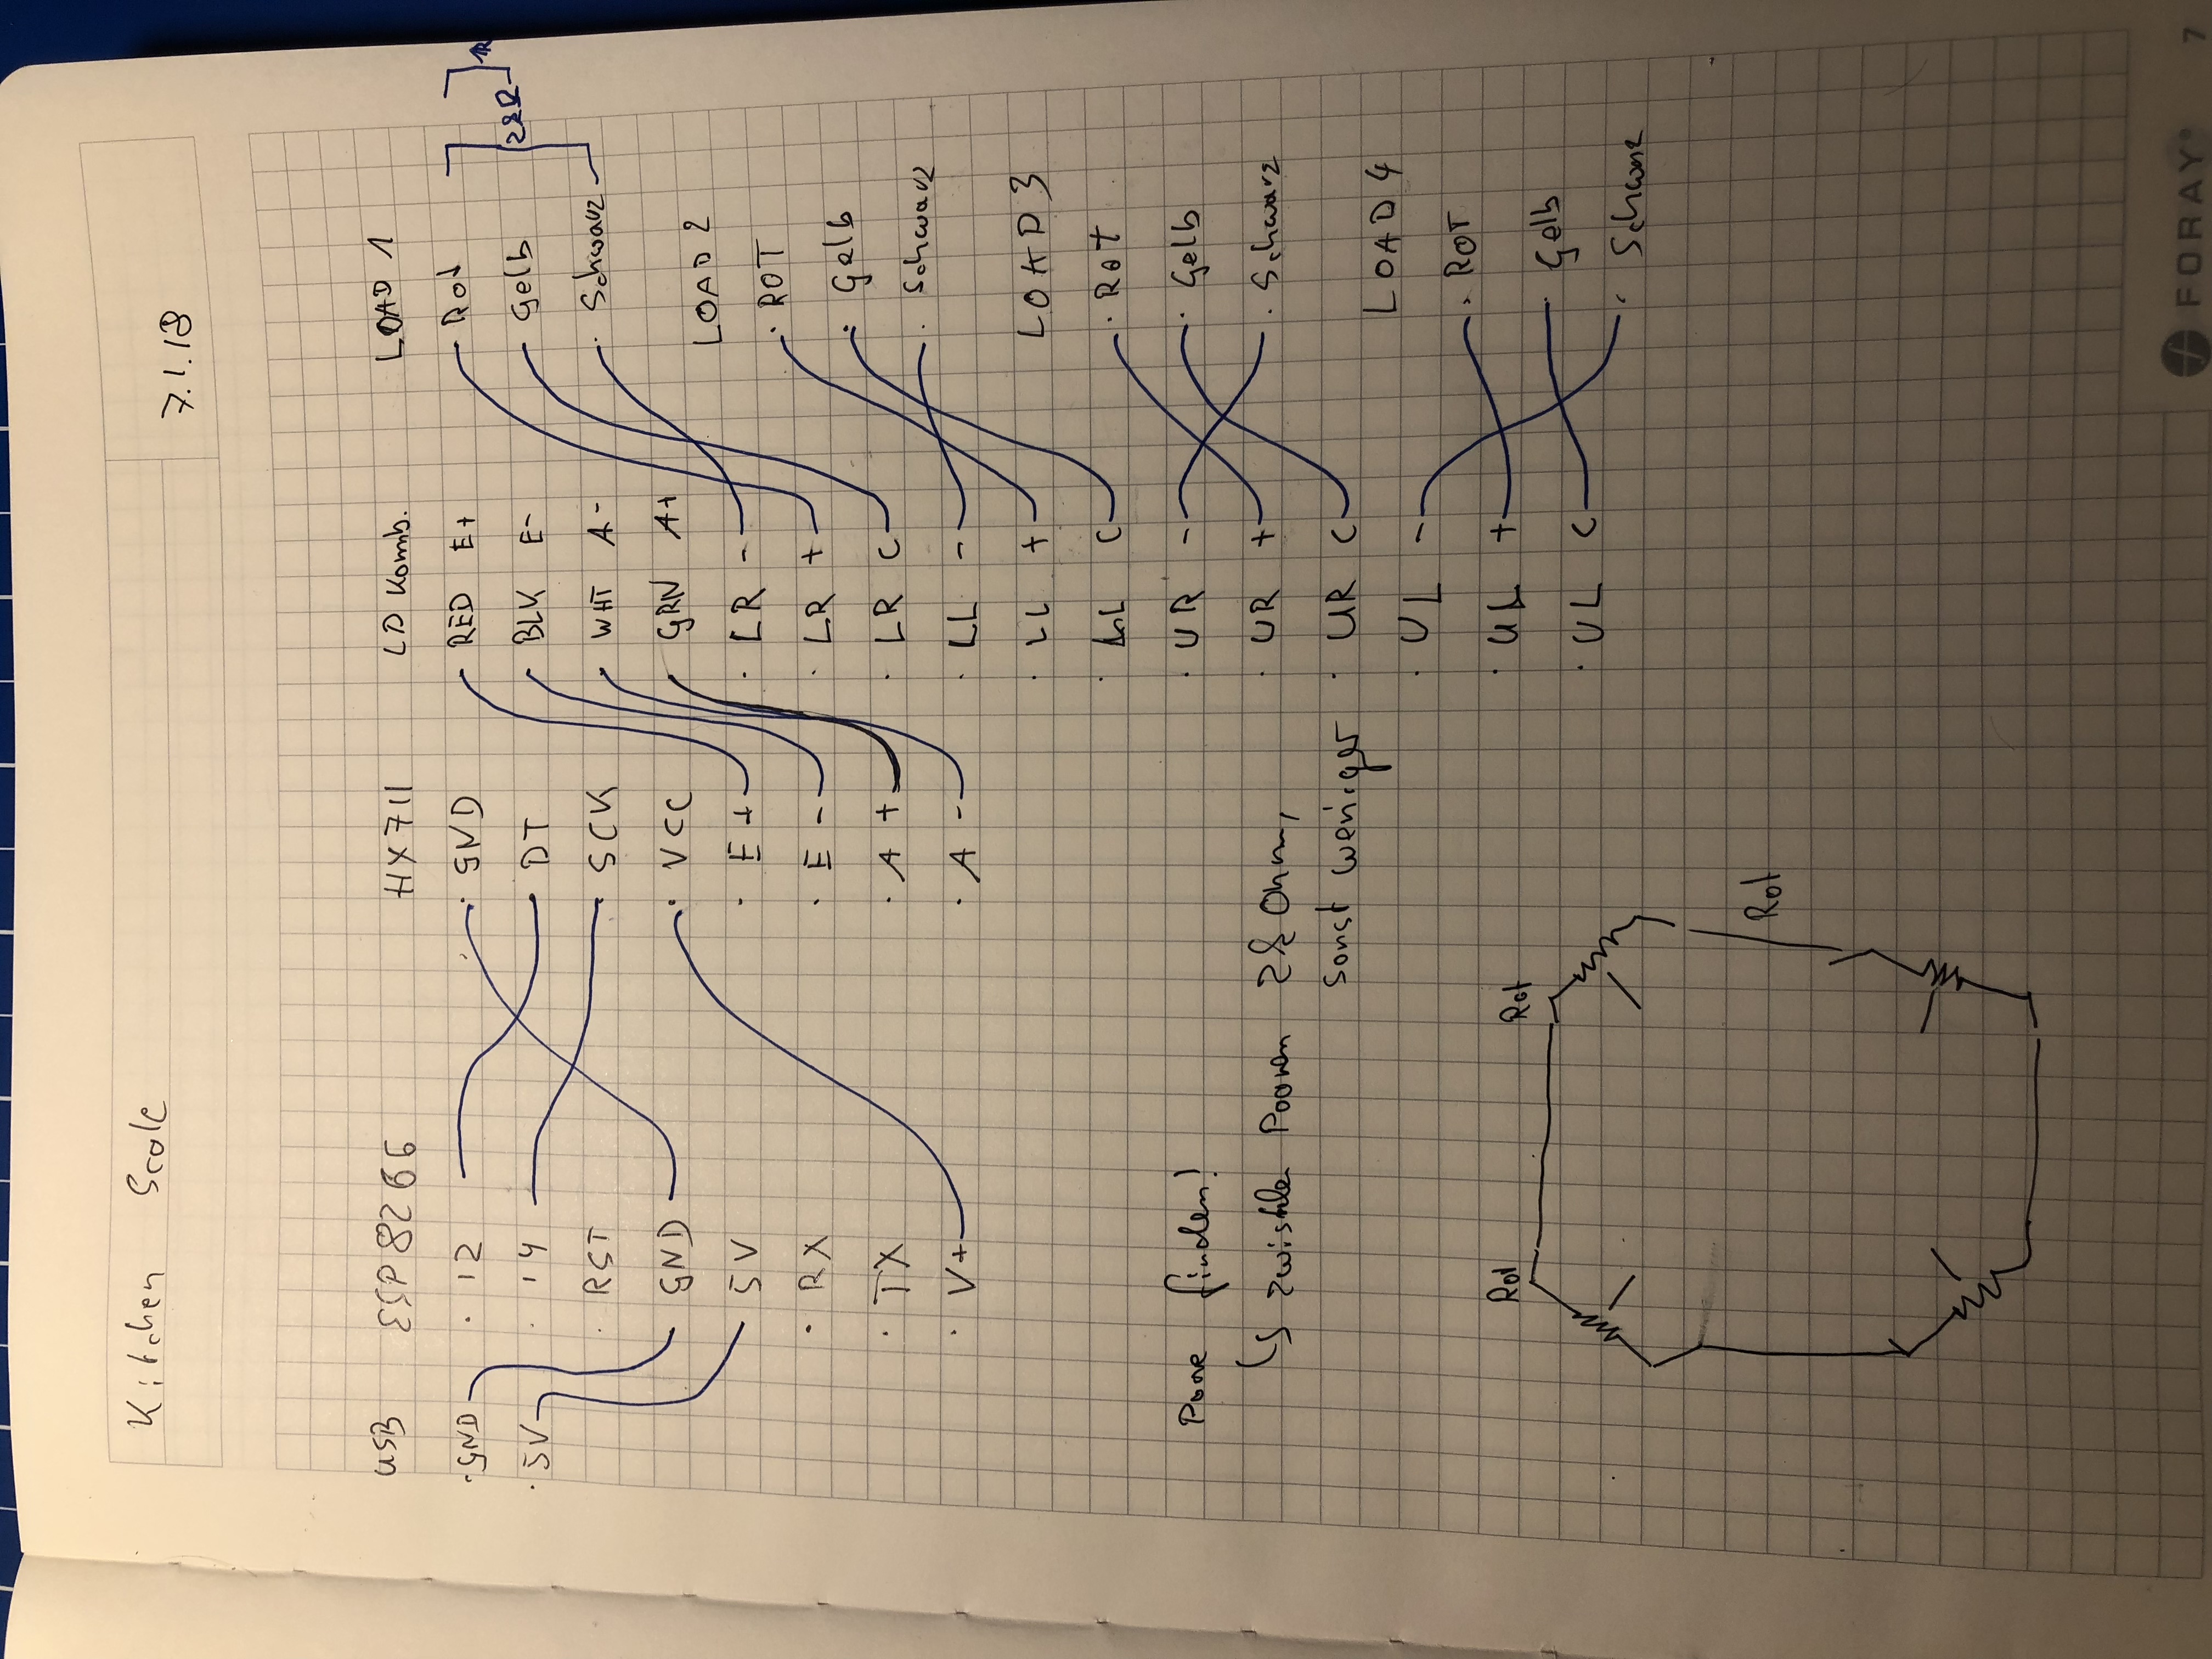 Kitchen Scale
7.1.18
USB
. GND
. 5V
ESP8266
. 12
. 14
. RST
GND
5V
. RX
. TX
. V+
HX711
. GND
DT
. SCK
. VCC
. E+
. E-
. A+
. A-
LD Komb.
RED E+
BLK E-
WHT A-
GRN A+
. LR -
. LR +
. LR C
. LL -
. LL +
. LL C
. UR -
. UR +
. UR C
. UL -
. UL +
. UL C
LOAD 1
Rot
Gelb
. Schwarz
2R
R
LOAD 2
. ROT
. Gelb
. Schwarz
LOAD 3
. Rot
. Gelb
. Schwarz
LOAD 4
. ROT
Gelb
. Schwarz
Paare finden!
zwischen Paaren Ohm,
sonst weniger
Rot
Rot
Rot
FORAY
7